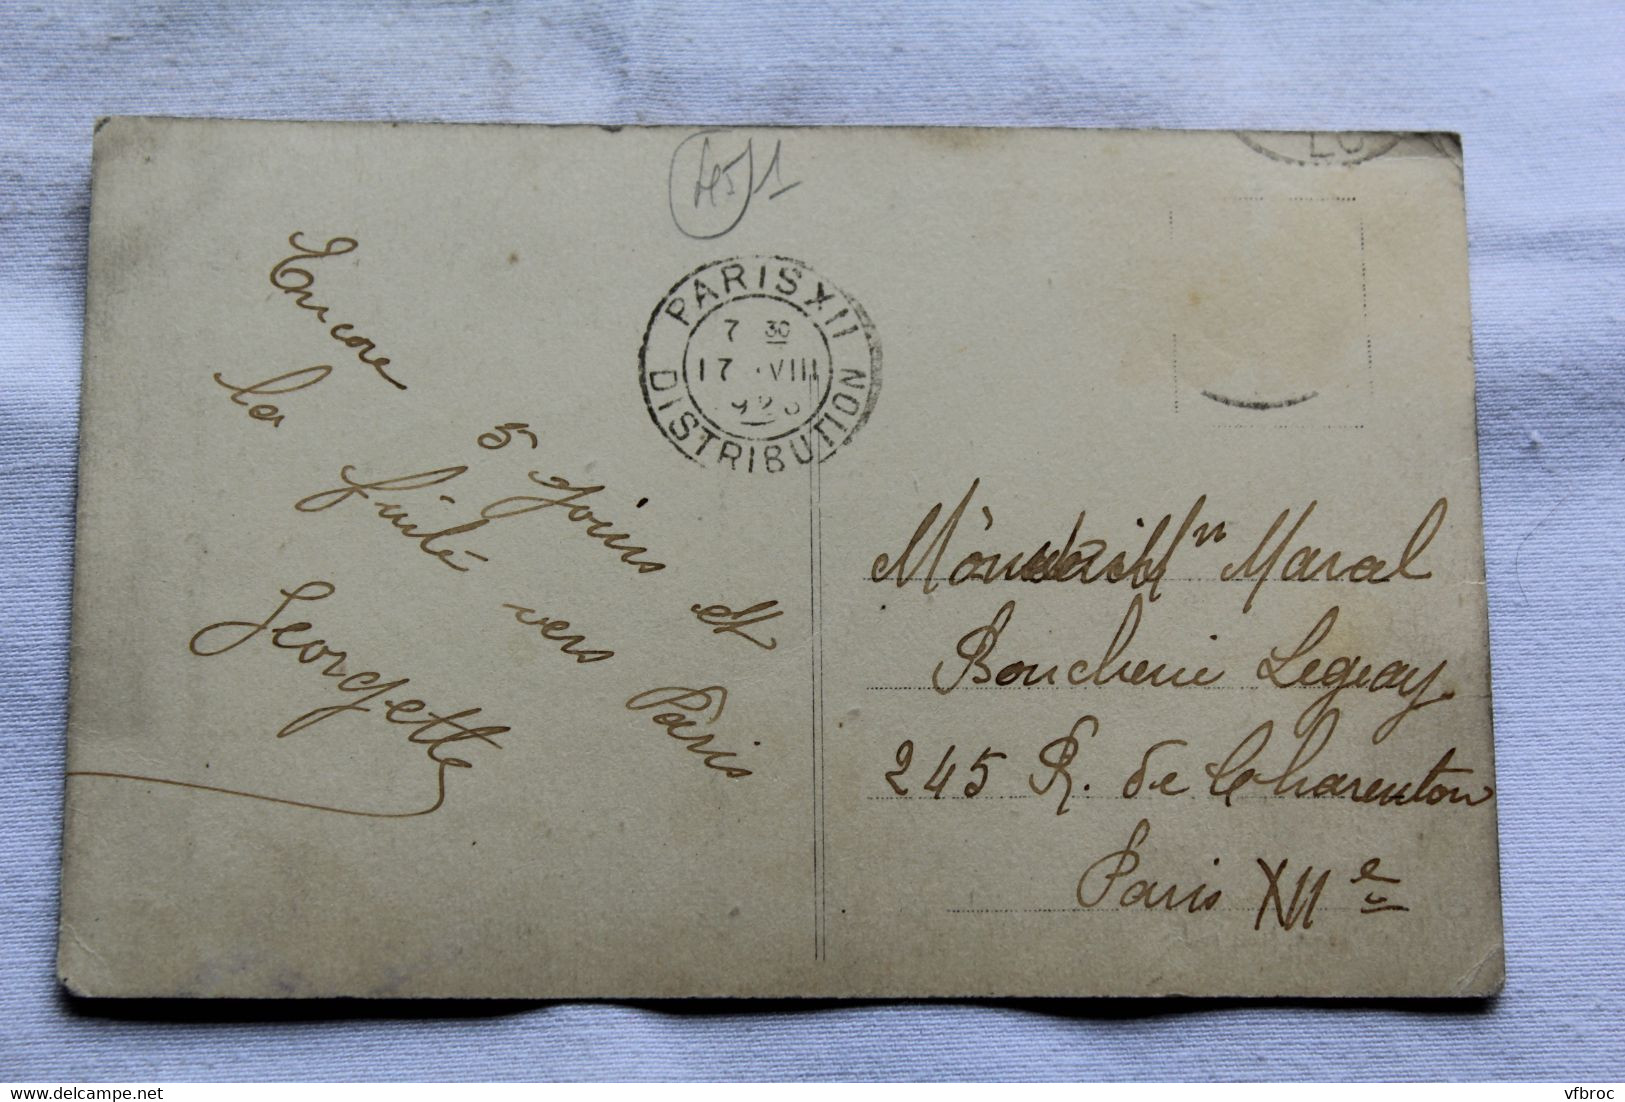 Encore 5 jours et
la fuite vers Paris
Georgette
451
PARIS XII
7 30
17 VIII
DISTRIBUTION
Marcel
Boucherie Legeay
245 R. de Charenton
Paris XIIe
vfbroc